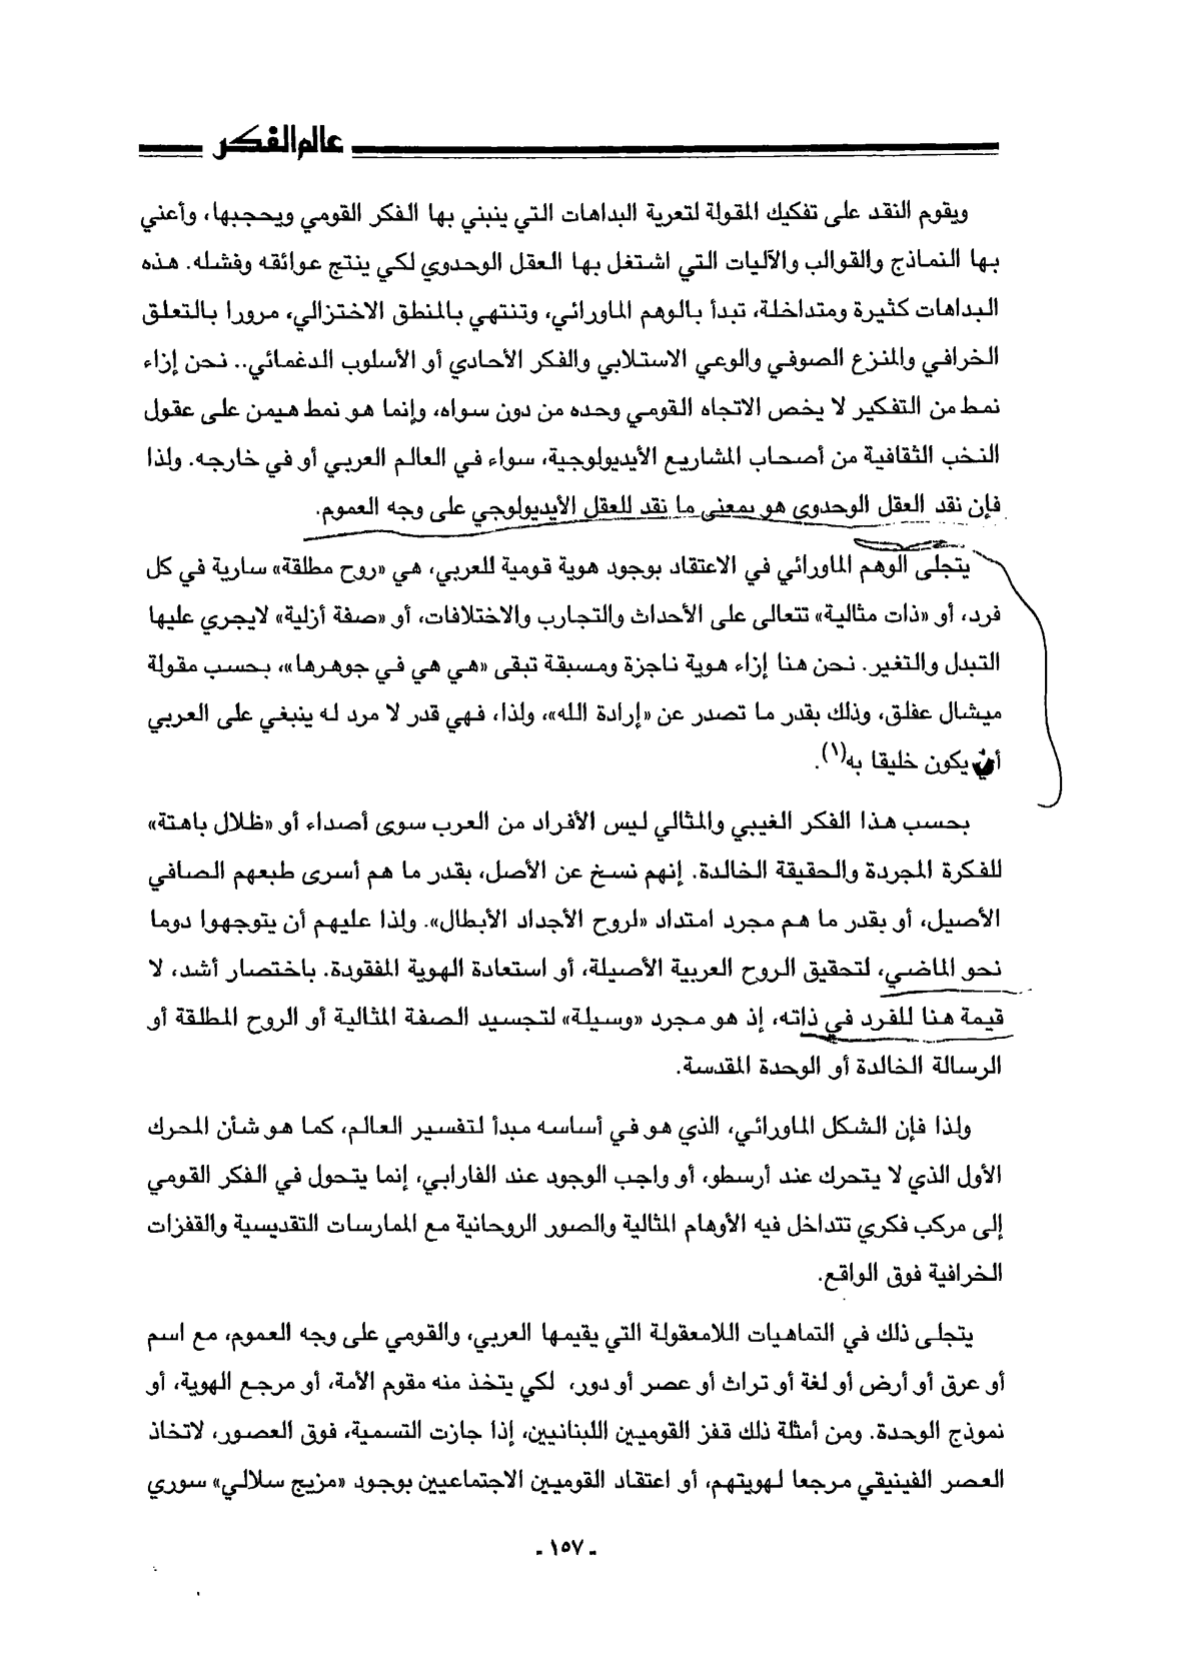 عالم الفكر
ويقوم النقد على تفكيك المقولة لتعرية البداهات التي ينبني بها الفكر القومي ويحجبها، وأعني
بها النماذج والقوالب والآليات التي اشتغل بها العقل الوحدوي لكي ينتج عوائقه وفشله. هذه
البداهات كثيرة ومتداخلة، تبدأ بالوهم الماورائي، وتنتهي بالمنطق الاختزالي، مرورا بالتعلق
الخرافي والمنزع الصوفي والوعي الاستلابي والفكر الأحادي أو الأسلوب الدغمائي.. نحن إزاء
نمط من التفكير لا يخص الاتجاه القومي وحده من دون سواه، وإنما هو نمط هيمن على عقول
النخب الثقافية من أصحاب المشاريع الأيديولوجية، سواء في العالم العربي أو في خارجه. ولذا
فإن نقد العقل الوحدوي هو بمعنى ما نقد للعقل الأيديولوجي على وجه العموم.
يتجلى الوهم الماورائي في الاعتقاد بوجود هوية قومية للعربي، هي «روح مطلقة» سارية في كل
فرد، أو «ذات مثالية» تتعالى على الأحداث والتجارب والاختلافات، أو «صفة أزلية» لايجري عليها
التبدل والتغير. نحن هنا إزاء هوية ناجزة ومسبقة تبقى «هي هي في جوهرها»، بحسب مقولة
ميشال عفلق، وذلك بقدر ما تصدر عن «إرادة الله»، ولذا، فهي قدر لا مرد له ينبغي على العربي
أن يكون خليقا به(١).
بحسب هذا الفكر الغيبي والمثالي ليس الأفراد من العرب سوى أصداء أو «ظلال باهتة»
للفكرة المجردة والحقيقة الخالدة. إنهم نسخ عن الأصل، بقدر ما هم أسرى طبعهم الصافي
الأصيل، أو بقدر ما هم مجرد امتداد «لروح الأجداد الأبطال». ولذا عليهم أن يتوجهوا دوما
نحو الماضي، لتحقيق الروح العربية الأصيلة، أو استعادة الهوية المفقودة. باختصار أشد، لا
قيمة هنا للفرد في ذاته، إذ هو مجرد «وسيلة» لتجسيد الصفة المثالية أو الروح المطلقة أو
الرسالة الخالدة أو الوحدة المقدسة.
ولذا فإن الشكل الماورائي، الذي هو في أساسه مبدأ لتفسير العالم، كما هو شأن المحرك
الأول الذي لا يتحرك عند أرسطو، أو واجب الوجود عند الفارابي، إنما يتحول في الفكر القومي
إلى مركب فكري تتداخل فيه الأوهام المثالية والصور الروحانية مع الممارسات التقديسية والقفزات
الخرافية فوق الواقع.
يتجلى ذلك في التماهيات اللامعقولة التي يقيمها العربي، والقومي على وجه العموم، مع اسم
أو عرق أو أرض أو لغة أو تراث أو عصر أو دور، لكي يتخذ منه مقوم الأمة، أو مرجع الهوية، أو
نموذج الوحدة. ومن أمثلة ذلك قفز القوميين اللبنانيين، إذا جازت التسمية، فوق العصور، لاتخاذ
العصر الفينيقي مرجعا لهويتهم، أو اعتقاد القوميين الاجتماعيين بوجود «مزيج سلالي» سوري
- ١٥٧ -